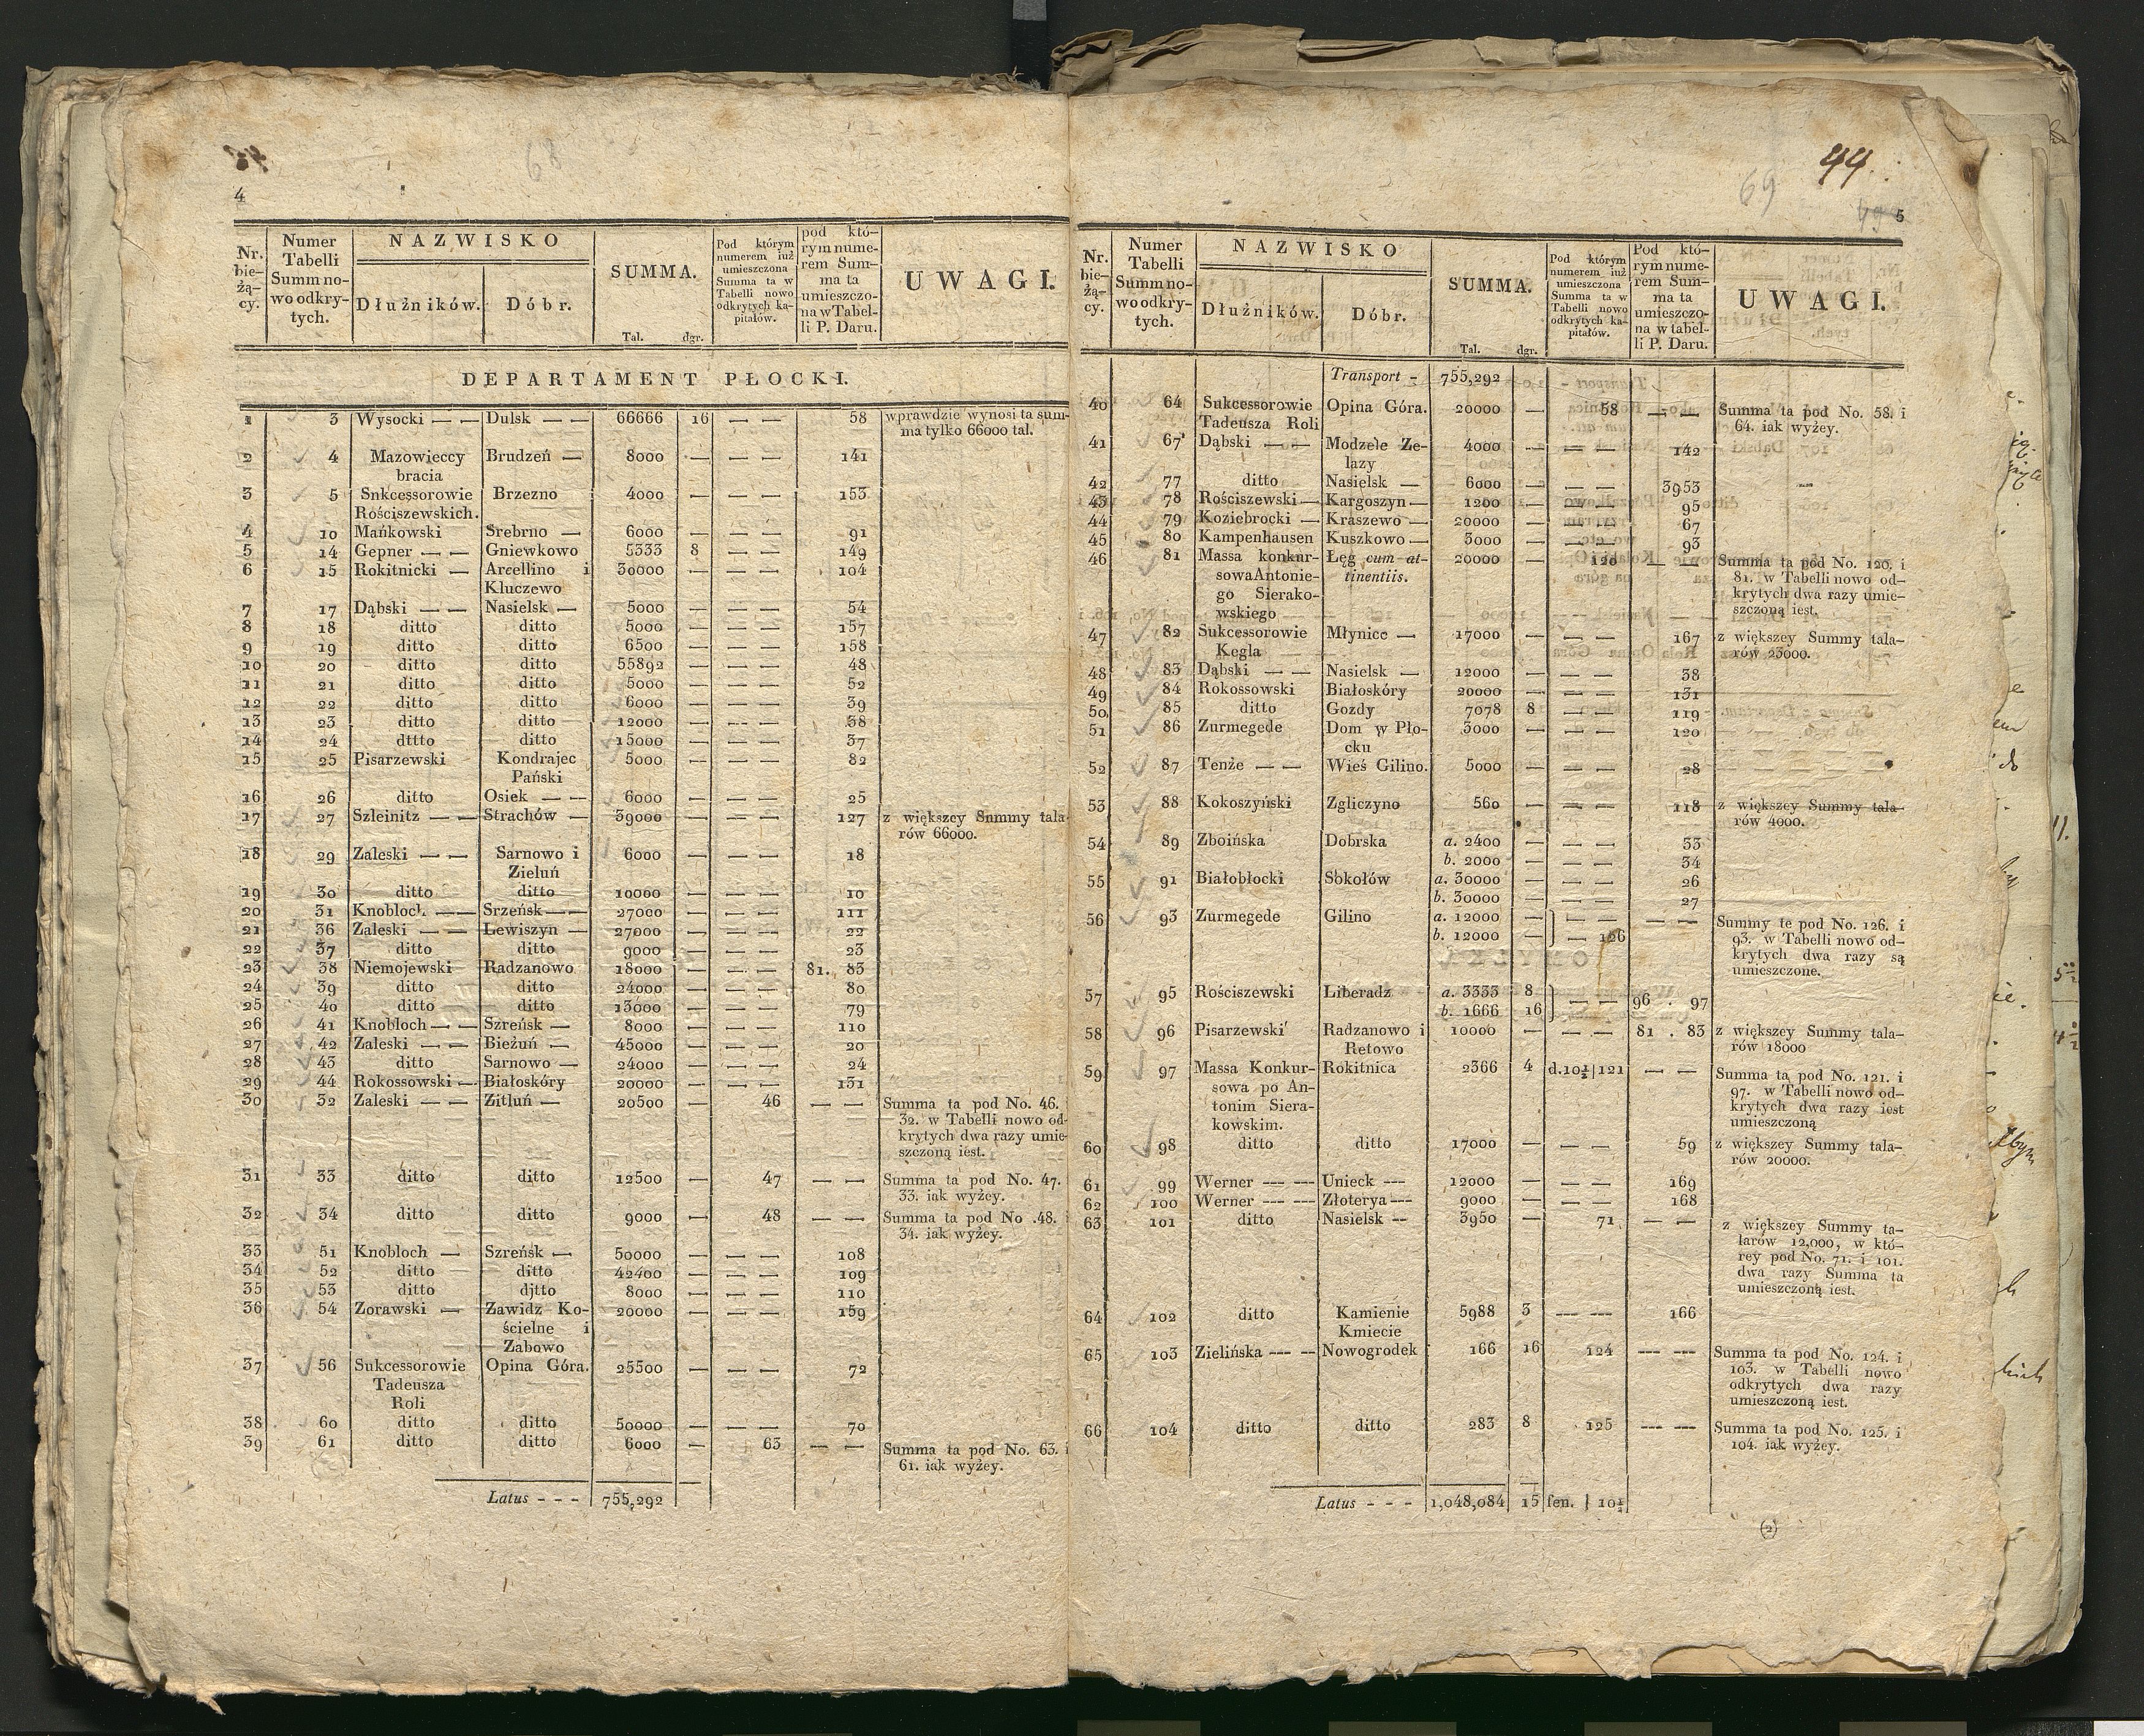 68
4
Nr. bie- żą- cy. | Numer Tabelli Summ no- wo odkry- tych. | NAZWISKO | SUMMA. | Pod którym numerem iuż umieszczona Summa ta w Tabelli nowo odkrytych ka- pitałów. | pod któ- rym nume- rem Sum- ma ta umieszczo- na w Tabel- li P. Daru. | UWAGI.
Dłużników. | Dóbr. | Tal. dgr.
DEPARTAMENT PŁOCKI.
1 | 3 | Wysocki — — | Dulsk — — | 66666 | 16 | — — | 58 | wprawdzie wynosi ta sum-
ma tylko 66000 tal.
2 | 4 | Mazowieccy | Brudzeń — | 8000 | — | — — | 141
bracia
3 | 5 | Snkcessorowie | Brzezno | 4000 | — | — — | 153
Rościszewskich.
4 | 10 | Mańkowski | Srebrno — | 6000 | — | — — | 91
5 | 14 | Gepner — — | Gniewkowo | 5333 | 8 | — — | 149
6 | 15 | Rokitnicki — | Arcellino i | 30000 | — | — — | 104
Kluczewo
7 | 17 | Dąbski — — | Nasielsk — | 5000 | — | — — | 54
8 | 18 | ditto | ditto | 5000 | — | — — | 157
9 | 19 | ditto | ditto | 6500 | — | — — | 158
10 | 20 | ditto | ditto | 55892 | — | — — | 48
11 | 21 | ditto | ditto | 5000 | — | — — | 52
12 | 22 | ditto | ditto | 6000 | — | — — | 39
13 | 23 | ditto | ditto | 12000 | — | — — | 38
14 | 24 | dttto | ditto | 15000 | — | — — | 37
15 | 25 | Pisarzewski | Kondrajec | 5000 | — | — — | 82
Pański
16 | 26 | ditto | Osiek — — | 6000 | — | — — | 25
17 | 27 | Szleinitz — — | Strachów — | 39000 | — | — — | 127 | z większey Snmmy tala
rów 66000.
18 | 29 | Zaleski — — | Sarnowo i | 6000 | — | — — | 18
Zieluń
19 | 30 | ditto | ditto | 10000 | — | — — | 10
20 | 31 | Knobloch — — | Srzeńsk — — | 27000 | — | — — | 111
21 | 36 | Zaleski — — | Lewiszyn — | 27000 | — | — — | 22
22 | 37 | ditto | ditto | 9000 | — | — — | 23
23 | 38 | Niemojewski | Radzanowo | 18000 | — | — — | 81. 83
24 | 39 | ditto | ditto | 24000 | — | — — | 80
25 | 40 | ditto | ditto | 13000 | — | — — | 79
26 | 41 | Knobloch — — | Szreńsk — | 8000 | — | — — | 110
27 | 42 | Zaleski — — | Bieżuń — | 45000 | — | — — | 20
28 | 43 | ditto | Sarnowo — | 24000 | — | — — | 24
29 | 44 | Rokossowski — | Białoskóry | 20000 | — | — — | 131
30 | 32 | Zaleski — — | Zitluń — | 20500 | — | 46 | — — | Summa ta pod No. 46.
32. w Tabelli nowo od-
krytych dwa razy umie-
szczoną iest.
31 | 33 | ditto | ditto | 12500 | — | 47 | — — | Summa ta pod No. 47.
33. iak wyżey.
32 | 34 | ditto | ditto | 9000 | — | 48 | — — | Summa ta pod No .48.
34. iak wyżey.
33 | 51 | Knobloch — | Szreńsk — | 50000 | — | — — | 108
34 | 52 | ditto | ditto | 42400 | — | — — | 109
35 | 53 | ditto | djtto | 8000 | — | — — | 110
36 | 54 | Zorawski — | Zawidz Ko- | 20000 | — | — — | 159
ścielne i
Zabowo
37 | 56 | Sukcessorowie | Opina Góra. | 25500 | — | — — | 72
Tadeusza
Roli
38 | 60 | ditto | ditto | 50000 | — | — — | 70
39 | 61 | ditto | ditto | 6000 | — | 63 | — — | Summa ta pod No. 63. i
61. iak wyżey.
Latus - - - | 755,292
44.
69
5
Nr. bie- żą- cy. | Numer Tabelli Summ no- wo odkry- tych. | NAZWISKO | SUMMA. | Pod którym numerem iuż umieszczona Summa ta w Tabelli nowo odkrytych ka- pitałów. | Pod któ- rym nume- rem Sum- ma ta umieszczo- na w tabel- li P. Daru. | UWAGI.
Dłużników. | Dóbr. | Tal. dgr.
Transport - | 755,292
40 | 64 | Sukcessorowie | Opina Góra. | 20000 | — | 58 | — — | Summa ta pod No. 58. i
Tadeusza Roli | 64. iak wyżey.
41 | 67 | Dąbski — — | Modzele Ze- | 4000 | — | — — | 142
lazy
42 | 77 | ditto | Nasielsk — | 6000 | — | — — | 3953
43 | 78 | Rościszewski — | Kargoszyn — | 1200 | — | — — | 95
44 | 79 | Koziebrocki — | Kraszewo — | 20000 | — | — — | 67
45 | 80 | Kampenhausen | Kuszkowo — | 3000 | — | — — | 93
46 | 81 | Massa konkur- | Łęg cum at- | 20000 | — | 120 | — — | Summa ta pod No. 120. i
sowa Antonie- | tinentiis. | 81. w Tabelli nowo od-
go Sierako- | krytych dwa razy umie-
wskiego | szczoną iest.
47 | 82 | Sukcessorowie | Młynice — | 17000 | — — | 167 | z większey Summy tala-
Kegla | rów 23000.
48 | 83 | Dąbski — — | Nasielsk — | 12000 | — | — — | 38
49 | 84 | Rokossowski | Białoskóry | 20000 | — | — — | 131
50 | 85 | ditto | Gozdy | 7078 | 8 | — — | 119
51 | 86 | Zurmegede | Dom w Pło- | 3000 | — | — — | 120
cku
52 | 87 | Tenże — — | Wieś Gilino. | 5000 | — | — — | 28
53 | 88 | Kokoszyński | Zgliczyno | 560 | — | — — | 118 | z większey Summy tala-
rów 4000.
54 | 89 | Zboińska | Dobrska | a. 2400 | — | — — | 33
b. 2000 | — | — — | 34
55 | 91 | Białobłocki | Sokołów | a. 30000 | — | — — | 26
b. 30000 | — | — — | 27
56 | 93 | Zurmegede | Gilino | a. 12000 | — | — — | — — | Summy te pod No. 126. i
b. 12000 | — | — 126 | 93. w Tabelli nowo od-
krytych dwa razy są
umieszczone.
57 | 95 | Rościszewski | Liberadz | a. 3333 | 8 | — — | 96 . 97
b. 1666 | 16
58 | 96 | Pisarzewski | Radzanowo i | 10000 | — | — — | 81 . 83 | z większey Summy tala-
Retowo | rów 18000
59 | 97 | Massa Konkur- | Rokitnica | 2366 | 4 | d.10½ | 121 | — — | Summa ta pod No. 121. i
sowa po An- | 97. w Tabelli nowo od-
tonim Siera- | krytych dwa razy iest
kowskim. | umieszczoną
60 | 98 | ditto | ditto | 17000 | — | — — | 59 | z większey Summy tala-
rów 20000.
61 | 99 | Werner — — | Unieck — | 12000 | — | — — | 169
62 | 100 | Werner — — | Złoterya — | 9000 | — | — — | 168
63 | 101 | ditto | Nasielsk — | 3950 | — | 71 | — — | z większey Summy ta-
larów 12,000, w któ-
rey pod No. 71. i 101.
dwa razy Summa ta
umieszczoną iest.
64 | 102 | ditto | Kamienie | 5988 | 3 | — — | 166
Kmiecie
65 | 103 | Zielińska — — | Nowogrodek | 166 | 16 | 124 | — — | Summa ta pod No. 124. i
103. w Tabelli nowo
odkrytych dwa razy
umieszczoną iest.
66 | 104 | ditto | ditto | 283 | 8 | 125 | — — | Summa ta pod No. 125. i
104. iak wyżey.
Latus - - - | 1,048,084 | 15 | fen. | 10½
(2)